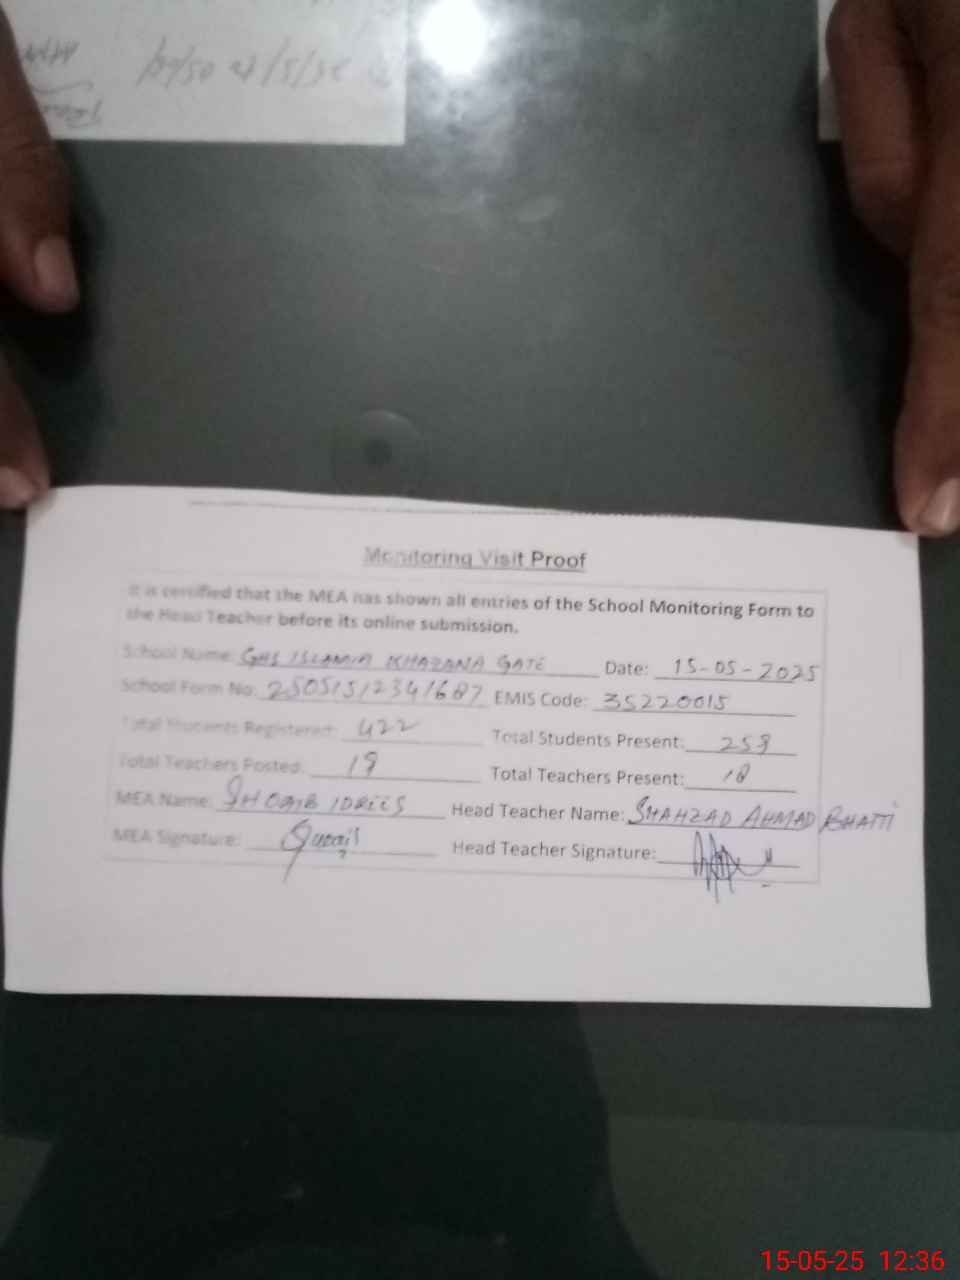 27/5/25
Monitoring Visit Proof
It is certified that the MEA has shown all entries of the School Monitoring Form to
the Head Teacher before its online submission.
School Name: GHS ISLAMIA KHAZANA GATE Date: 15-05-2025
School Form No: 25051512341687 EMIS Code: 35220015
Total Students Registered: 422 Total Students Present: 253
Total Teachers Posted: 19 Total Teachers Present: 18
MEA Name: SHOAIB IDREES Head Teacher Name: SHAHZAD AHMAD BHATTI
MEA Signature: Head Teacher Signature:
15-05-25 12:36